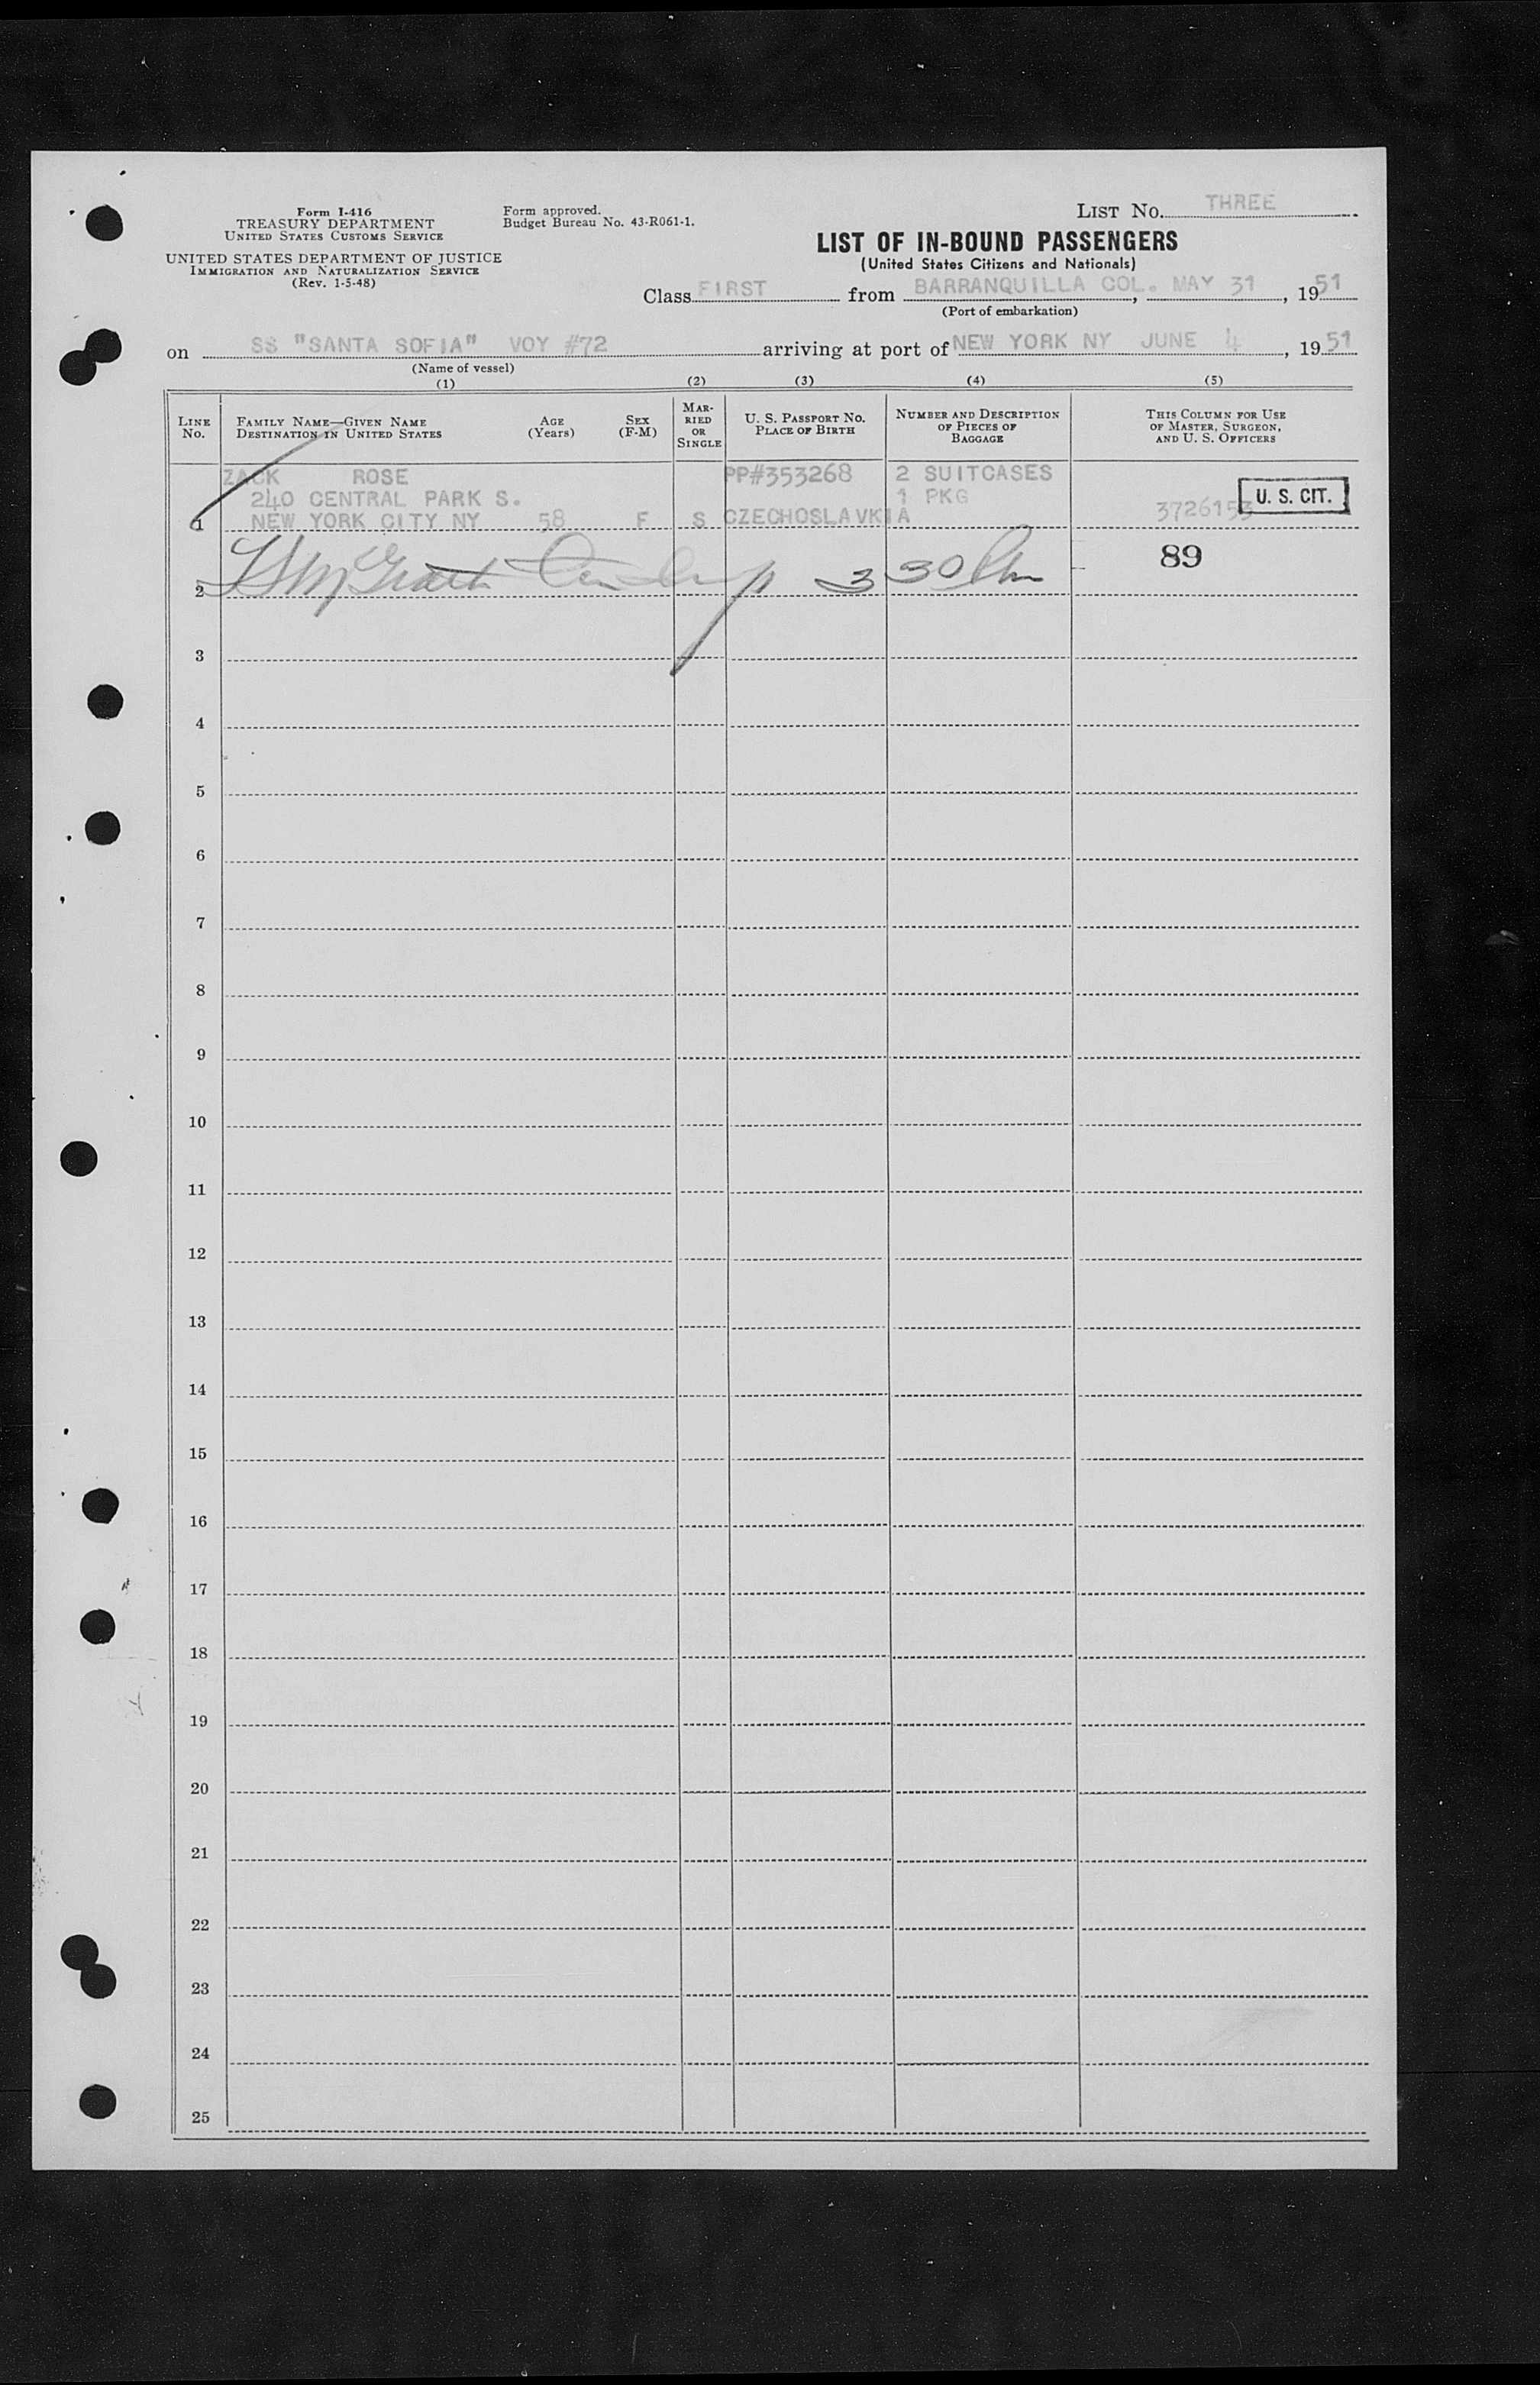 Form I-416
TREASURY DEPARTMENT
UNITED STATES CUSTOMS SERVICE
UNITED STATES DEPARTMENT OF JUSTICE
IMMIGRATION AND NATURALIZATION SERVICE
(Rev. 1-5-48)
Form approved.
Budget Bureau No. 43-R061-1.
LIST NO. THREE
LIST OF IN-BOUND PASSENGERS
(United States Citizens and Nationals)
Class FIRST from BARRANQUILLA COL., MAY 31, 1951
(Port of embarkation)
on SS "SANTA SOFIA" VOY #72 arriving at port of NEW YORK NY JUNE 4, 1951
(Name of vessel)
(1) (2) (3) (4) (5)
LINE No.
FAMILY NAME—GIVEN NAME
DESTINATION IN UNITED STATES
AGE
(Years)
SEX
(F-M)
MAR-
RIED
OR
SINGLE
U. S. PASSPORT NO.
PLACE OF BIRTH
NUMBER AND DESCRIPTION
OF PIECES OF
BAGGAGE
THIS COLUMN FOR USE
OF MASTER, SURGEON,
AND U. S. OFFICERS
ZACK ROSE PP#353268 2 SUITCASES
240 CENTRAL PARK S. 1 PKG U. S. CIT.
1 NEW YORK CITY NY 58 F S CZECHOSLAVKIA 3726153
2 McGrath 3 30 Pm 89
3
4
5
6
7
8
9
10
11
12
13
14
15
16
17
18
19
20
21
22
23
24
25